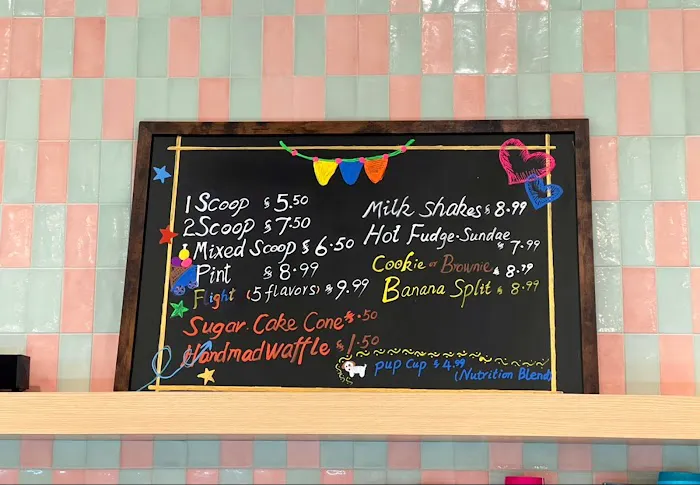 1 Scoop $ 5.50
2 Scoop $ 7.50
Mixed Scoop $ 6.50
Pint $ 8.99
Flight (5 flavors) $ 9.99
Sugar. Cake Cone $ .50
HandmadWaffle $ 1.50
Milk Shakes $ 8.99
Hot Fudge.Sundae $ 7.99
Cookie or Brownie $ 8.79
Banana Split $ 8.99
pup cup $ 4.99
(Nutrition Blend)